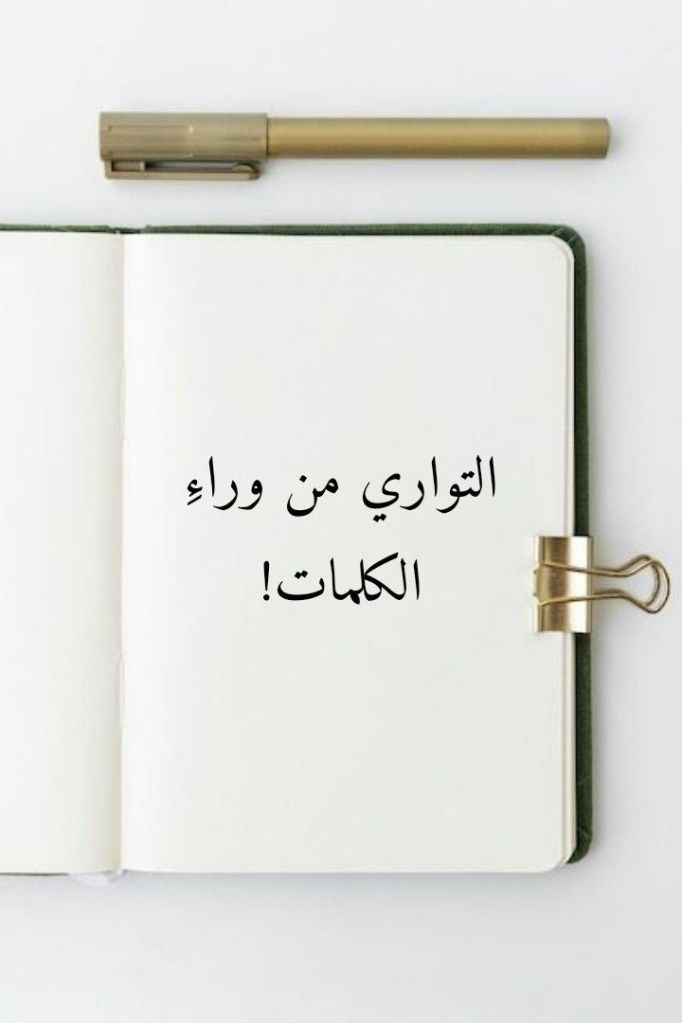 التواري من وراءِ
الكلمات!